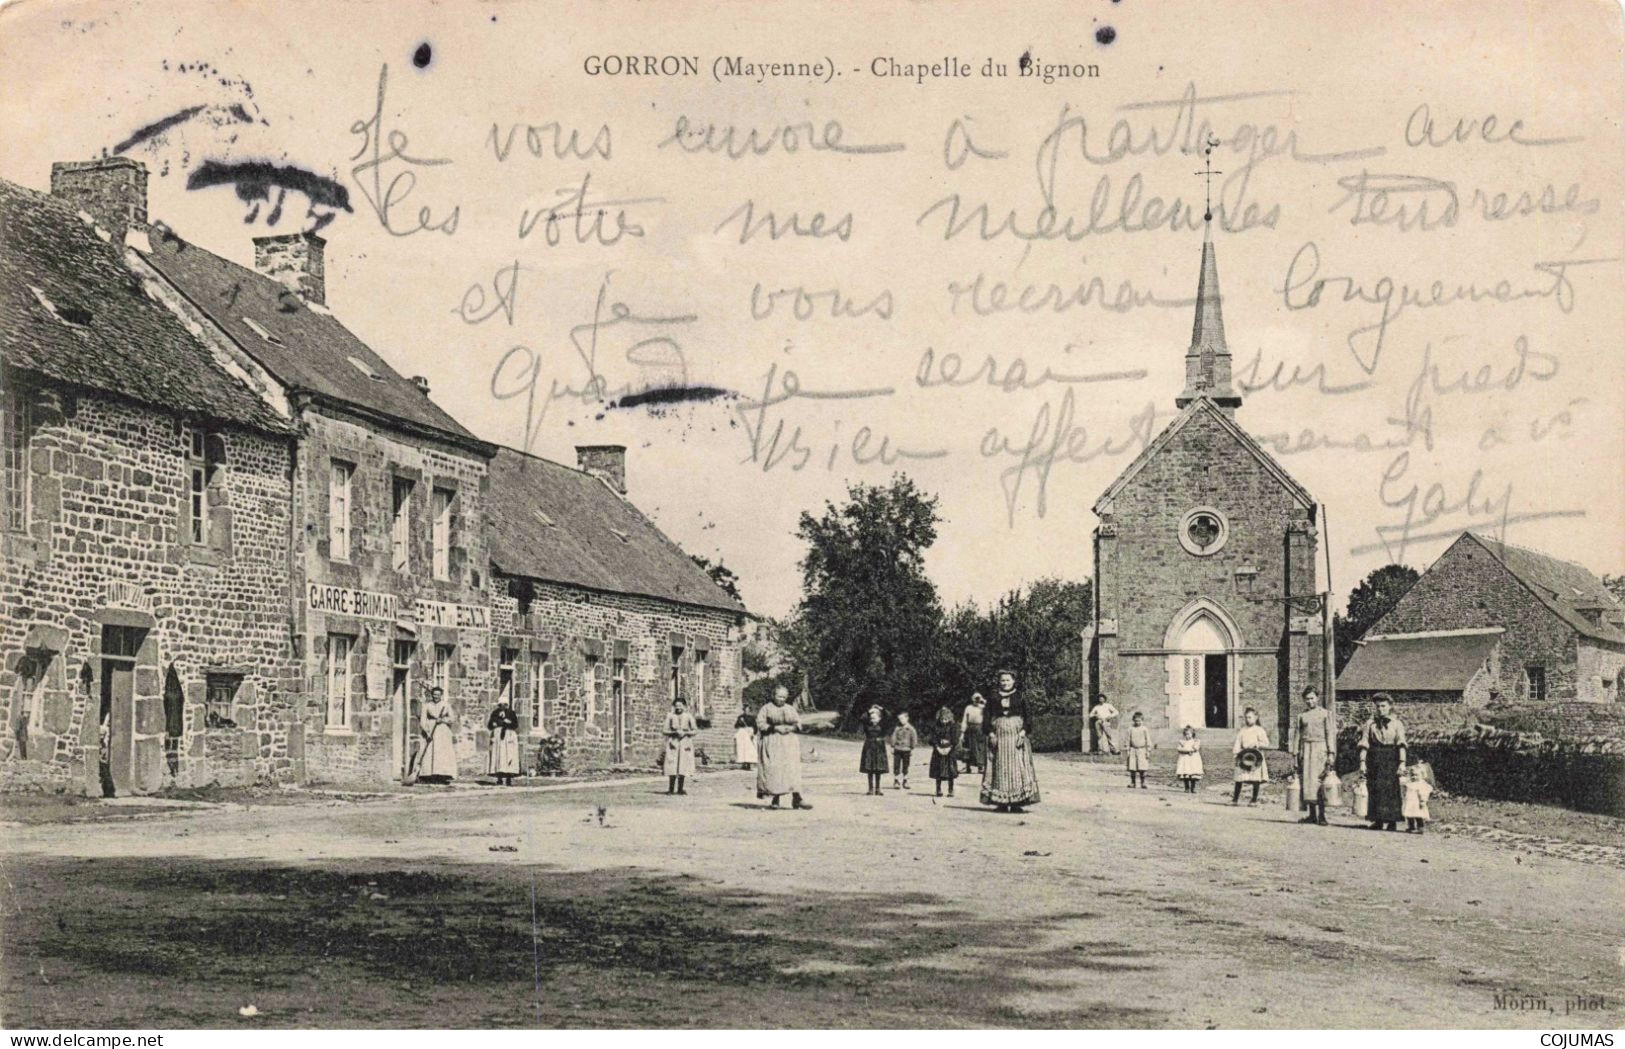 GORRON (Mayenne). - Chapelle du Bignon
Je vous envoie à partager avec
les votres mes meilleures tendresses,
et je vous récrirai longuement
Quand je serai sur pieds
Bien affectueusement à vs
Galy
GARRÉ-BRIMAN
Morin, phot.
www.delcampe.net
COJUMAS